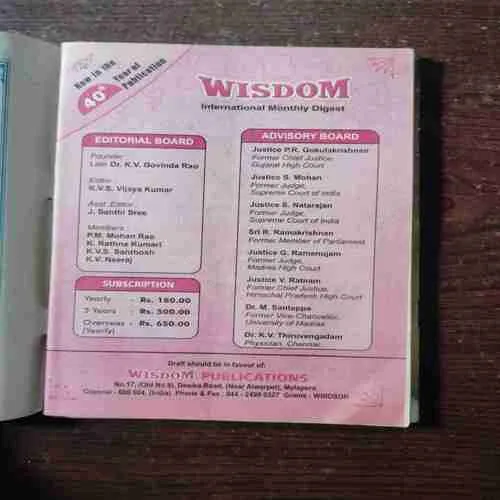 Now in the
40th Year of
Publication
WISDOM
International Monthly Digest
EDITORIAL BOARD
Founder
Late Dr. K.V. Govinda Rao
Editor
K.V.S. Vijaya Kumar
Asst. Editor
J. Santhi Sree
Members
P.M. Mohan Rao
K. Rathna Kumari
K.V.S. Santhosh
K.V. Neeraj
SUBSCRIPTION
Yearly - Rs. 180.00
3 Years - Rs. 500.00
Overseas - Rs. 650.00
(Yearly)
ADVISORY BOARD
Justice P.R. Gokulakrishnan
Former Chief Justice,
Gujarat High Court
Justice S. Mohan
Former Judge,
Supreme Court of India
Justice S. Natarajan
Former Judge,
Supreme Court of India
Sri R. Ramakrishnan
Former Member of Parliament
Justice G. Ramanujam
Former Judge,
Madras High Court
Justice V. Ratnam
Former Chief Justice,
Himachal Pradesh High Court
Dr. M. Santappa
Former Vice-Chancellor,
University of Madras
Dr. K.V. Thiruvengadam
Physician, Chennai.
Draft should be in favour of:
WISDOM PUBLICATIONS
No.17, (Old No.9), Road, (Near Alwarpet), Mylapore
Chennai - 600 004. (India) Phone & Fax : 044 - 2499 Grams : WINDSOR